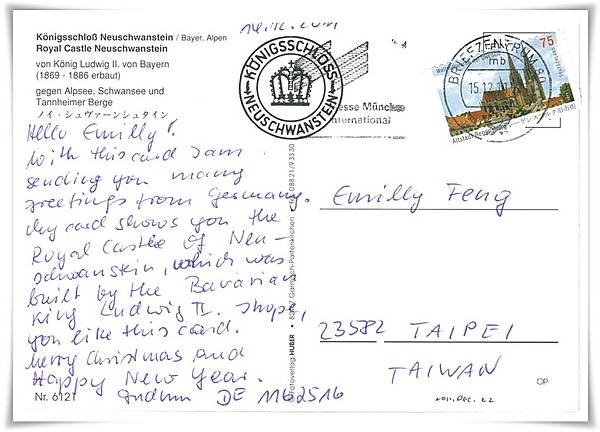 14.12.2011
Königsschloß Neuschwanstein / Bayer. Alpen
Royal Castle Neuschwanstein
von König Ludwig II. von Bayern
(1869 - 1886 erbaut)
gegen Alpsee, Schwansee und
Tannheimer Berge
ノイ・シュヴァーンシュタイン
Hello Emilly!
With this card I am
sending you many
greetings from Germany.
My card shows you the
Royal Castle of Neu-
schwanstein, which was
built by the Bavarian
King Ludwig II. I hope,
you like this card.
Merry Christmas and
Happy New Year.
Gudrun DE 1162516
Nr. 6121
KÖNIGSSCHLOSS
NEUSCHWANSTEIN
esse München
International
BRIEFZENTRUM 80
mb
15.12.11
75
Altstadt Regensburg
Fotoverlag HUBER • 8100 Garmisch-Partenkirchen • Tel. 08821/93330
Emilly Feng
23582 TAIPEI
TAIWAN
2011.Dec.22
OP